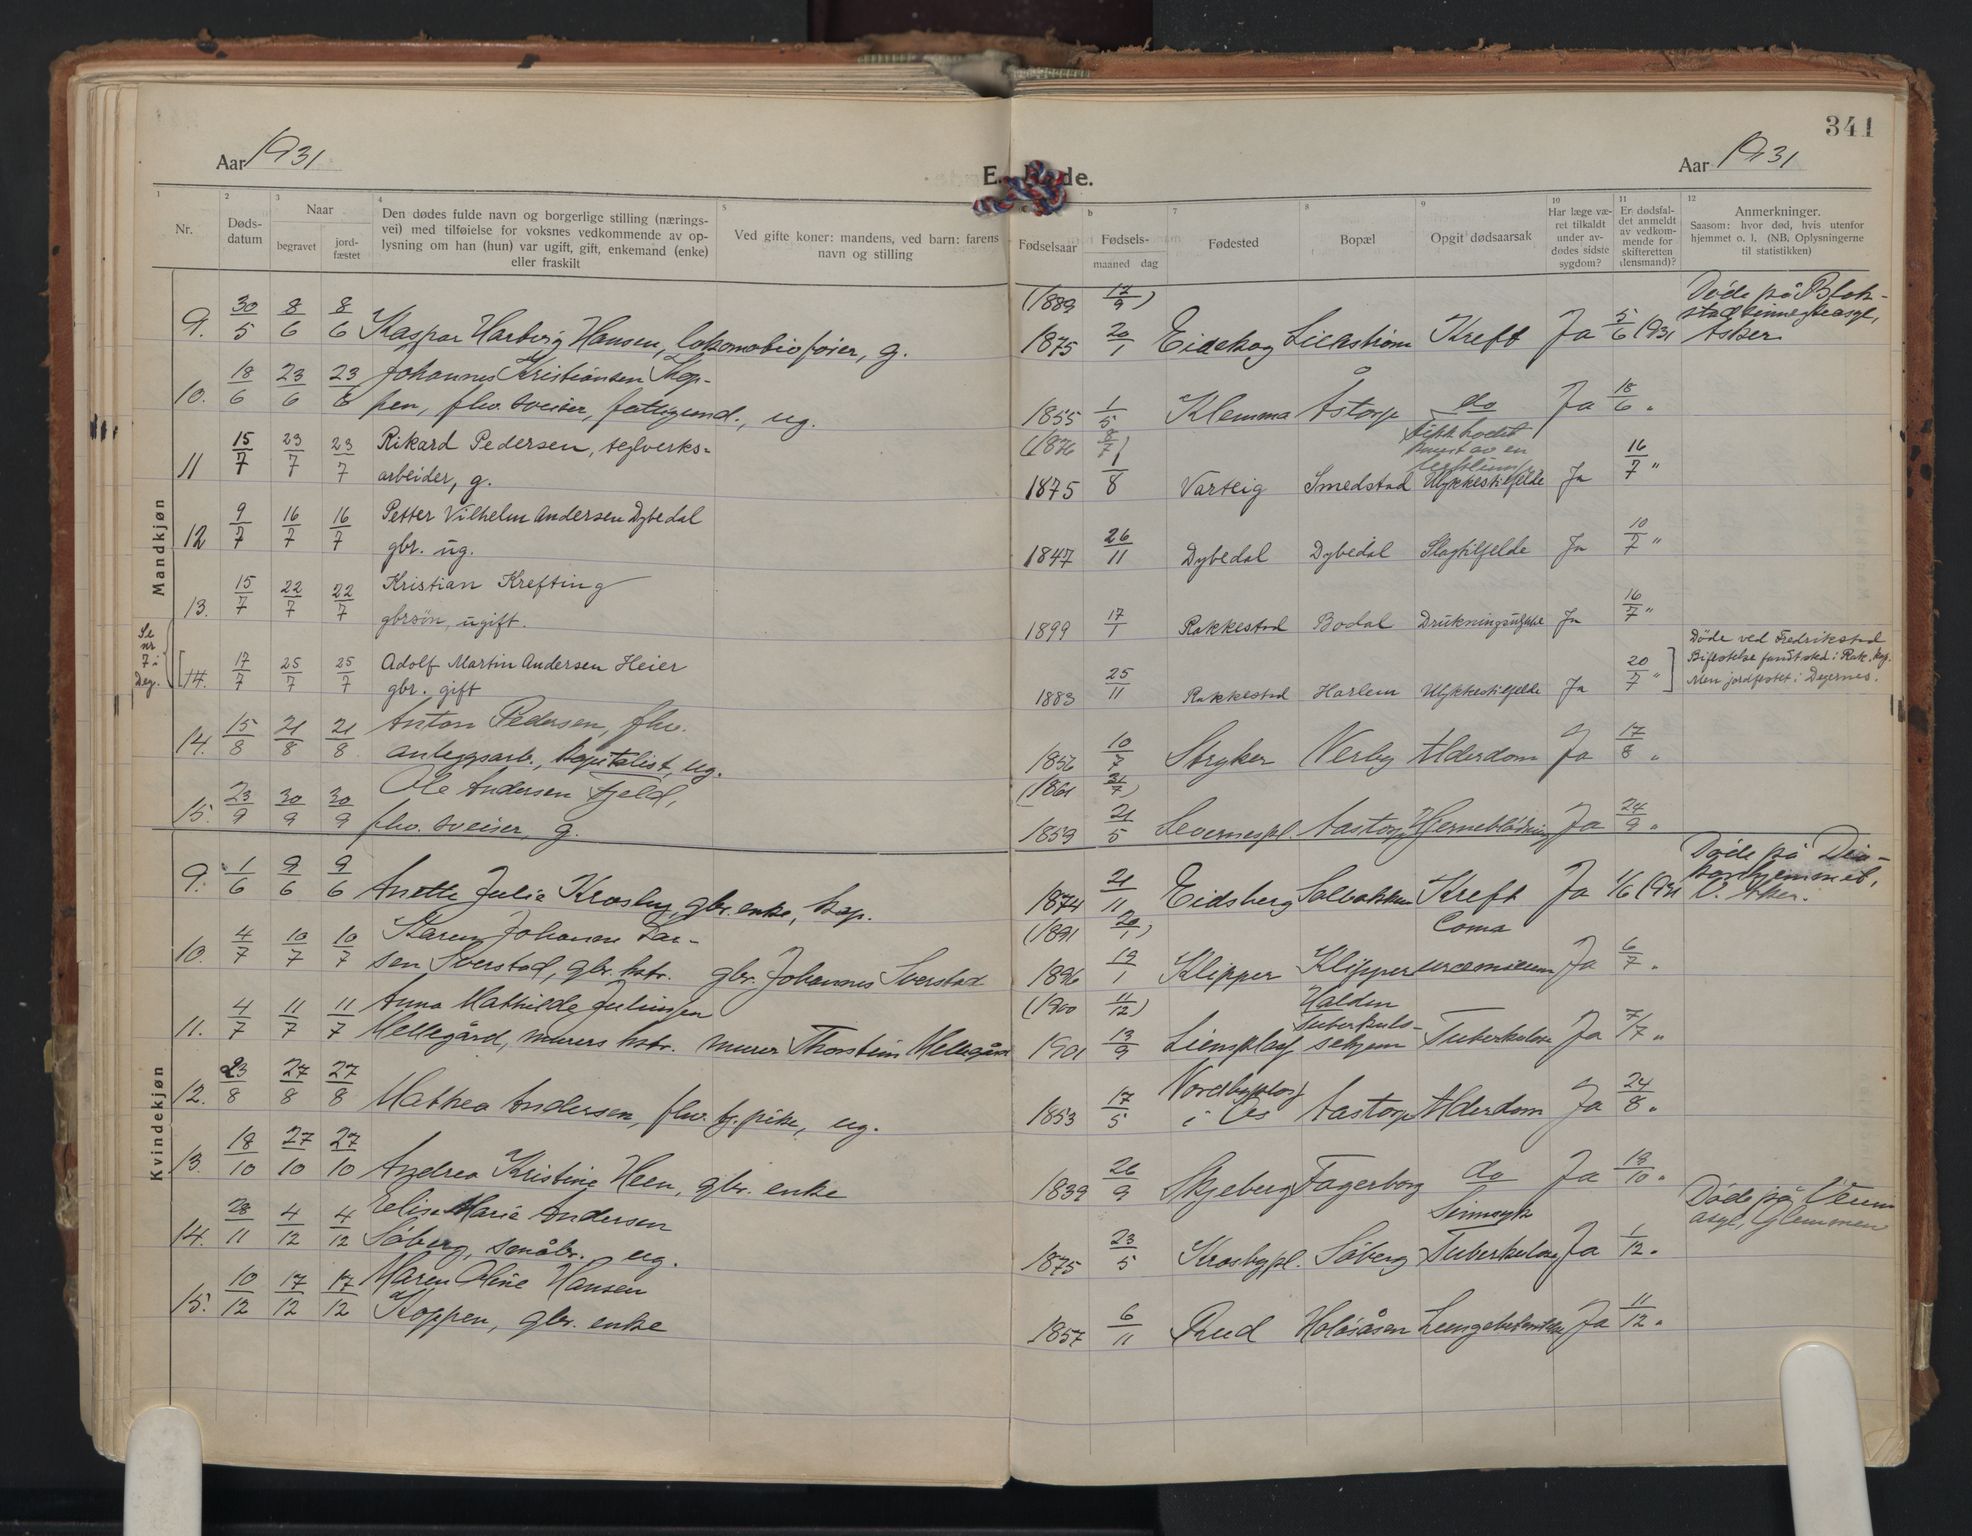 341
Aar 1931
E. Døde.
Aar 1931
1 2 3 4 5 b 7 8 9 10 11 12
Nr.
Døds-
datum
Naar
begravet
jord-
fæstet
Den dødes fulde navn og borgerlige stilling (nærings-
vei) med tilføielse for voksnes vedkommende av op-
lysning om han (hun) var ugift, gift, enkemand (enke)
eller fraskilt
Ved gifte koner: mandens, ved barn: farens
navn og stilling
Fødselsaar
Fødsels-
maaned dag
Fødested
Bopæl
Opgit dødsaarsak
Har læge væ-
ret tilkaldt
under av-
dødes sidste
sygdom?
Er dødsfal-
det anmeldt
av vedkom-
mende for
skifteretten
(lensmand)?
Anmerkninger.
Saasom: hvor død, hvis utenfor
hjemmet o. l. (NB. Oplysningerne
til statistikken)
Mandkjøn
(1889 12/9) Døde på Blak-
stad sinnsykeasyl,
9. 30/5 8/6 8/6 Kaspar Harberg Hansen, lokomobilfører, g. 1875 20/1 Eidskog Lillestrøm Kreft Ja 5/6 1931 Asker
10. 18/6 23/6 23/6 Johannes Kristiansen Kop-
pen, fhv. sveiser, fattigund., ug. 1855 1/5 Klemma Åstorp do Ja 18/6 "
(1876 8/7) Fikk hodet
knust av en
11 15/7 23/7 23/7 Rikard Pedersen, teglverks-
arbeider, g. 1875 1/8 Varteig Smedstad Ulykkestilfelde Ja 16/7 "
12 9/7 16/7 16/7 Petter Vilhelm Andersen Dybedal
gbr. ug. 1847 26/11 Dybedal Dybedal Slagtilfelde Ja 10/7 "
13. 15/7 22/7 22/7 Kristian Krefting
gbrsøn, ugift. 1899 17/1 Rakkestad Bodal Drukningsulykke Ja 16/7 "
Se
nr
7 i
Deg.
[14. 17/7 25/7 25/7 Adolf Martin Andersen Heier
gbr. gift 1883 25/11 Rakkestad Harlem Ulykkestilfelde Ja 20/7 "]
Døde ved Fredrikstad
Bifestelse fandt sted i Rak. kap.
Men jordfestet i Degernes.
14. 15/8 21/8 21/8 Anton Pedersen, fhv.
anleggsarb., kapitalist, ug. 1856 10/7 Stryker Nerby Alderdom Ja 17/8 "
(1861 31/7)
15. 23/9 30/9 30/9 Ole Andersen Fjeld,
fhv. sveiser, g. 1859 21/5 Levernespl. Aastorp Hjerneblødning Ja 24/9 "
Kvindekjøn
9. 1/6 9/6 9/6 Anette Julie Krosby, gbr. enke, kap. 1874 21/11 Eidsberg Solbakken Kreft Ja 1/6 1931
Døde på Dia-
konhjemmet,
V. Aker.
(1891 20/1) Coma
10. 4/7 10/7 10/7 Karen Johanne Lar-
sen Sverstad, gbr. hstr. gbr. Johannes Sverstad 1896 19/1 Klipper Klipper uræmicum Ja 6/7 "
(1900 11/12) Halden
Tuberkulo-
11. 4/7 11/7 11/7 Anna Mathilde Juliussen
Mellegård, murers hstr. murer Thorstein Mellegård 1901 13/9 Liensplass sehjem Tuberkulose Ja 7/7 "
12. 23/8 27/8 27/8 Mathea Andersen, fhv. tj. pike, ug. 1853 17/5 Nordbyplass
i Os Aastorp Alderdom Ja 24/8 "
13. 18/10 27/10 27/10 Andrea Kristine Heen, gbr. enke 1839 26/9 Skjeberg Fagerborg do Ja 19/10 "
14. 28/11 4/12 4/12 Elise Marie Andersen
Søberg, småbr. ug. 1875 23/5 Krosbypl. Søberg Sinnsyk
Tuberkulose Ja 1/12 "
Døde på Veum
asyl, Glemmen
15. 10/12 17/12 17/12 Maren Oline Hansen
Koppen, gbr. enke 1857 6/11 Rud Holøsåsen Lungebetendelse Ja 11/12 "